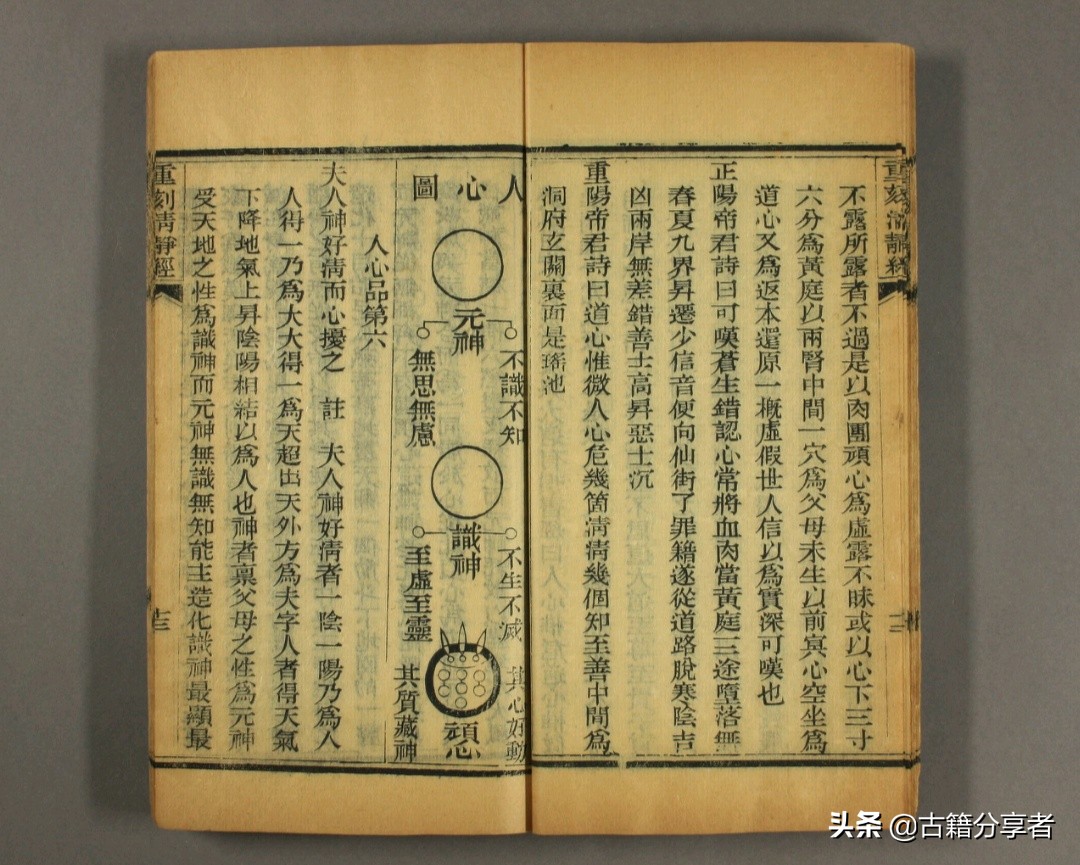 不露所露者不過是以肉團頑心為虛露不昧或以心下三寸
六分為黃庭以兩腎中間一穴為父母未生以前冥心空坐為
道心又為返本還原一概虛假世人信以為實深可嘆也
正陽帝君詩曰可嘆蒼生錯認心常將血肉當黃庭三途墮落無
春夏九界昇遷少信音便向仙街了罪籍遂從道路脫寒陰吉
凶兩岸無差錯善士高昇惡士沉
重陽帝君詩曰道心惟微人心危幾箇清清幾個知至善中間為
洞府玄關裏面是瑤池
人心圖
元神
不識不知
無思無慮
識神
不生不滅
至虛至靈
其心好動
其質藏神
人心品第六
夫人神好清而心擾之 註 夫人神好清者一陰一陽乃為人
人得一乃為大大得一為天超出天外方為夫字人者得天氣
下降地氣上昇陰陽相結以為人也神者稟父母之性為元神
受天地之性為識神而元神無識無知能主造化識神最顯最
重刻清靜經
头条 @古籍分享者